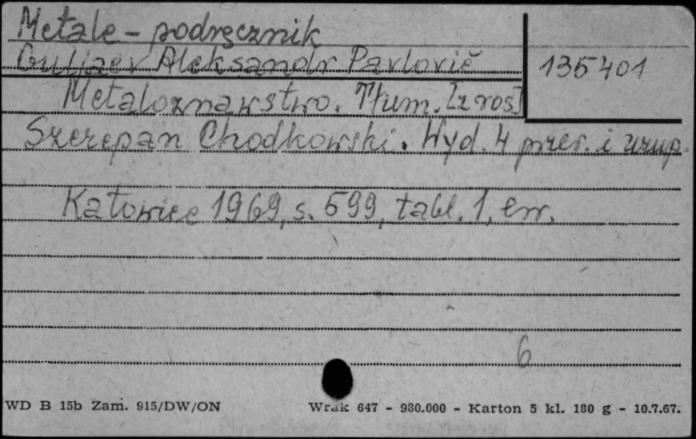 Metale - podręcznik
Guljaev Aleksandr Pavlovič
135401
Metaloznawstwo. Tłum. [z ros]
Szczepan Chodkowski. Wyd. 4 przer. i uzup.
Katowice 1969, s. 599, tabl. 1, err.
6
WD B 15b Zam. 915/DW/ON
Wrak 647 - 980.000 - Karton 5 kl. 180 g - 10.7.67.